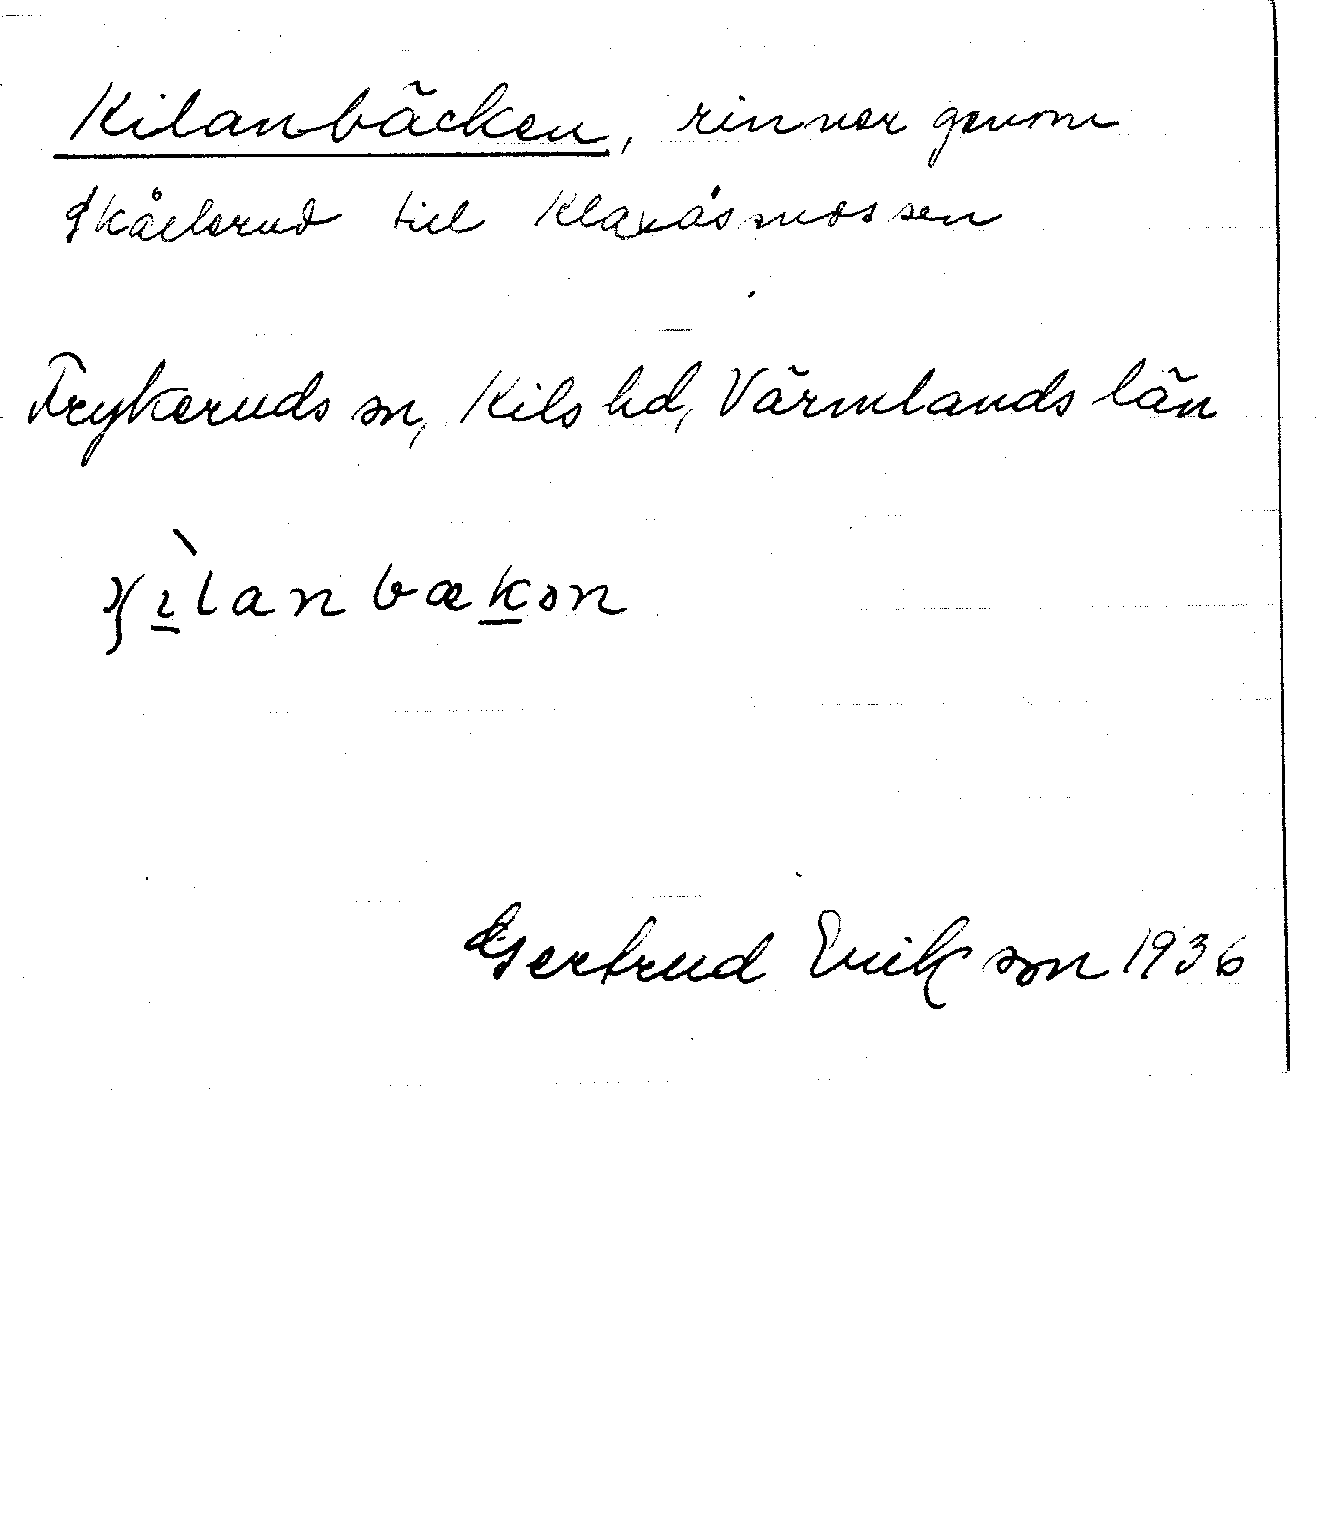 Kilanbäcken, rinner genom
Skållerud till Klaxåsmossen
Frykeruds sn, Kils hd, Värmlands län
bækən
Gertrud Erikson 1936